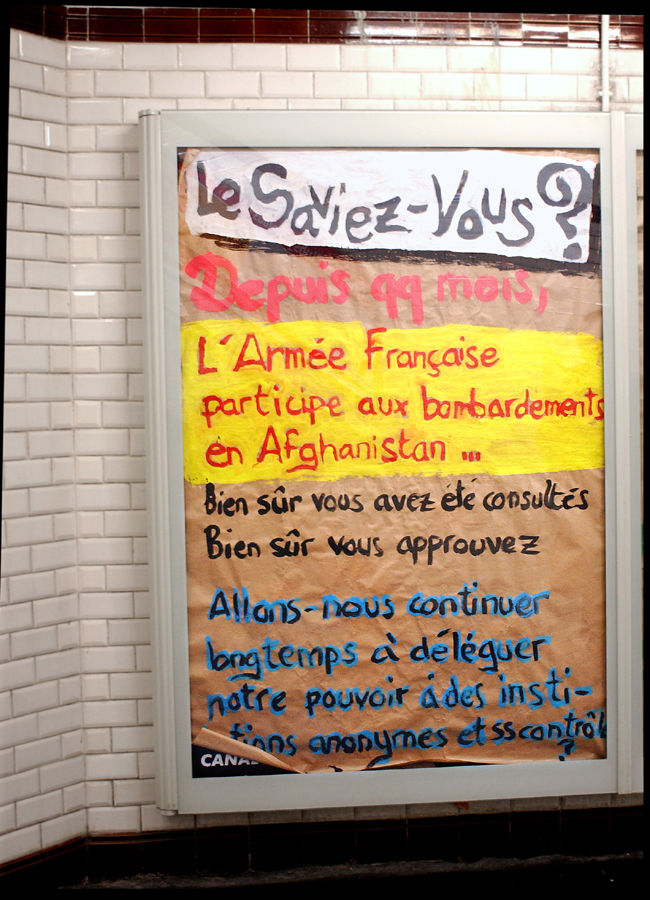 Le Saviez-Vous ?
Depuis qq mois,
L'Armée Française
participe aux bombardements
en Afghanistan ...
Bien sûr vous avez été consultés
Bien sûr vous approuvez
Allons-nous continuer
longtemps à déléguer
notre pouvoir à des insti-
tutions anonymes et ss contrôle
?
CANAL